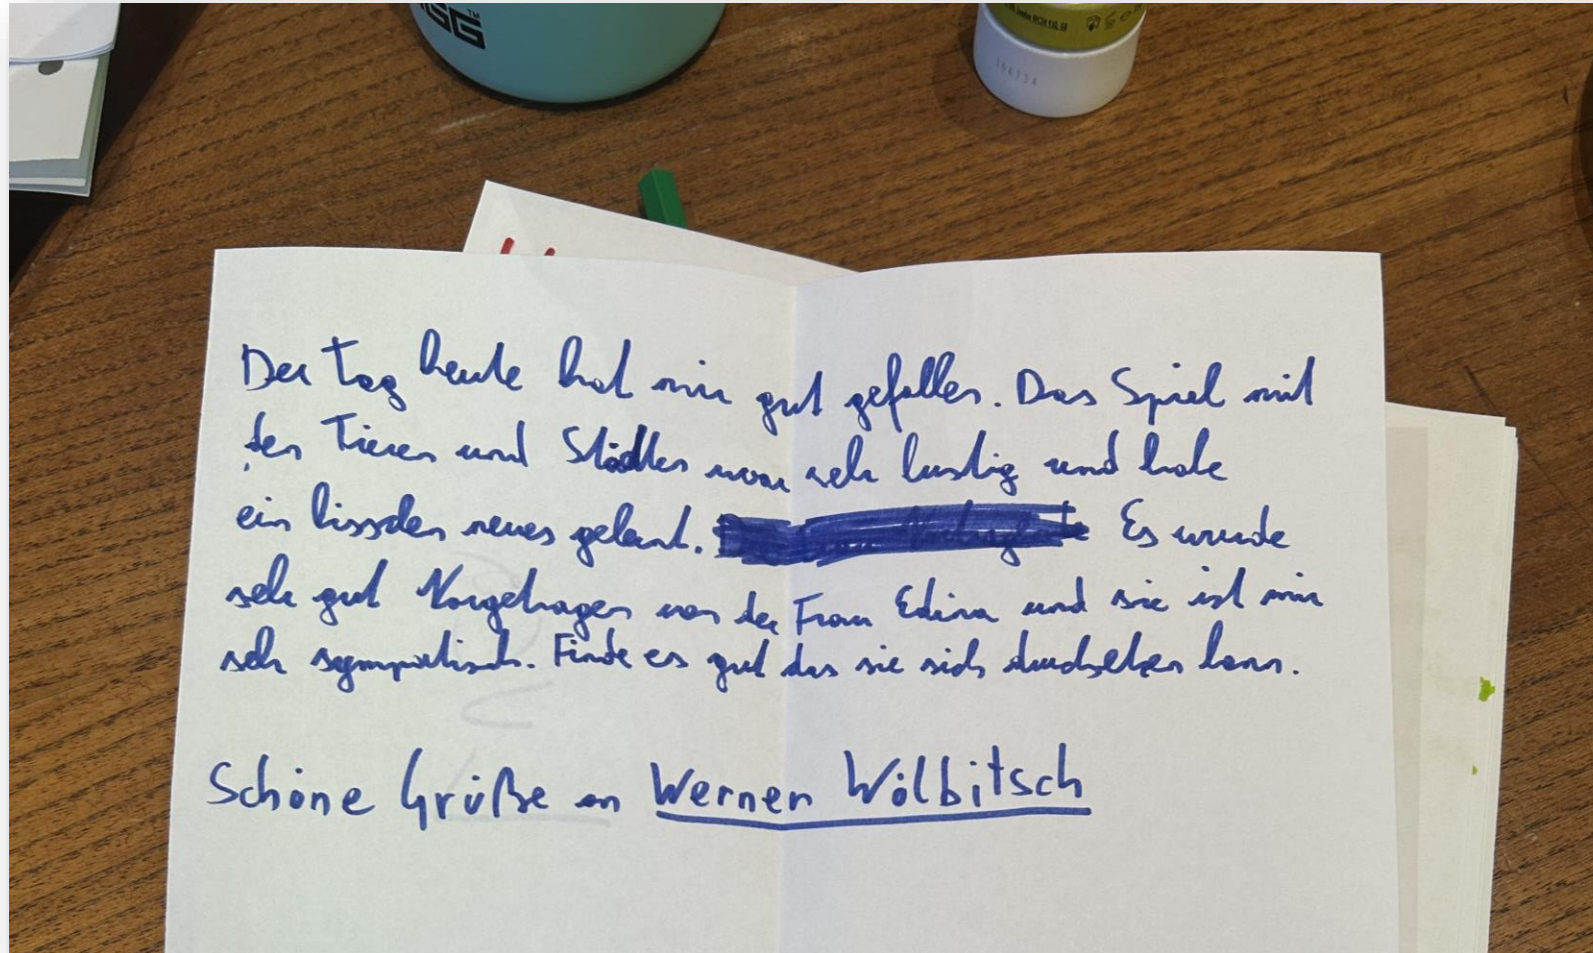 SG™
164734
Der Tag heute hat mir gut gefallen. Das Spiel mit
den Tieren und Städten war sehr lustig und habe
ein bisschen neues gelernt. Es wurde
sehr gut Vorgetragen von der Frau Edina und sie ist mir
sehr sympatisch. Finde es gut das sie sich durchsetzen kann.
Schöne Grüße an Werner Wölbitsch